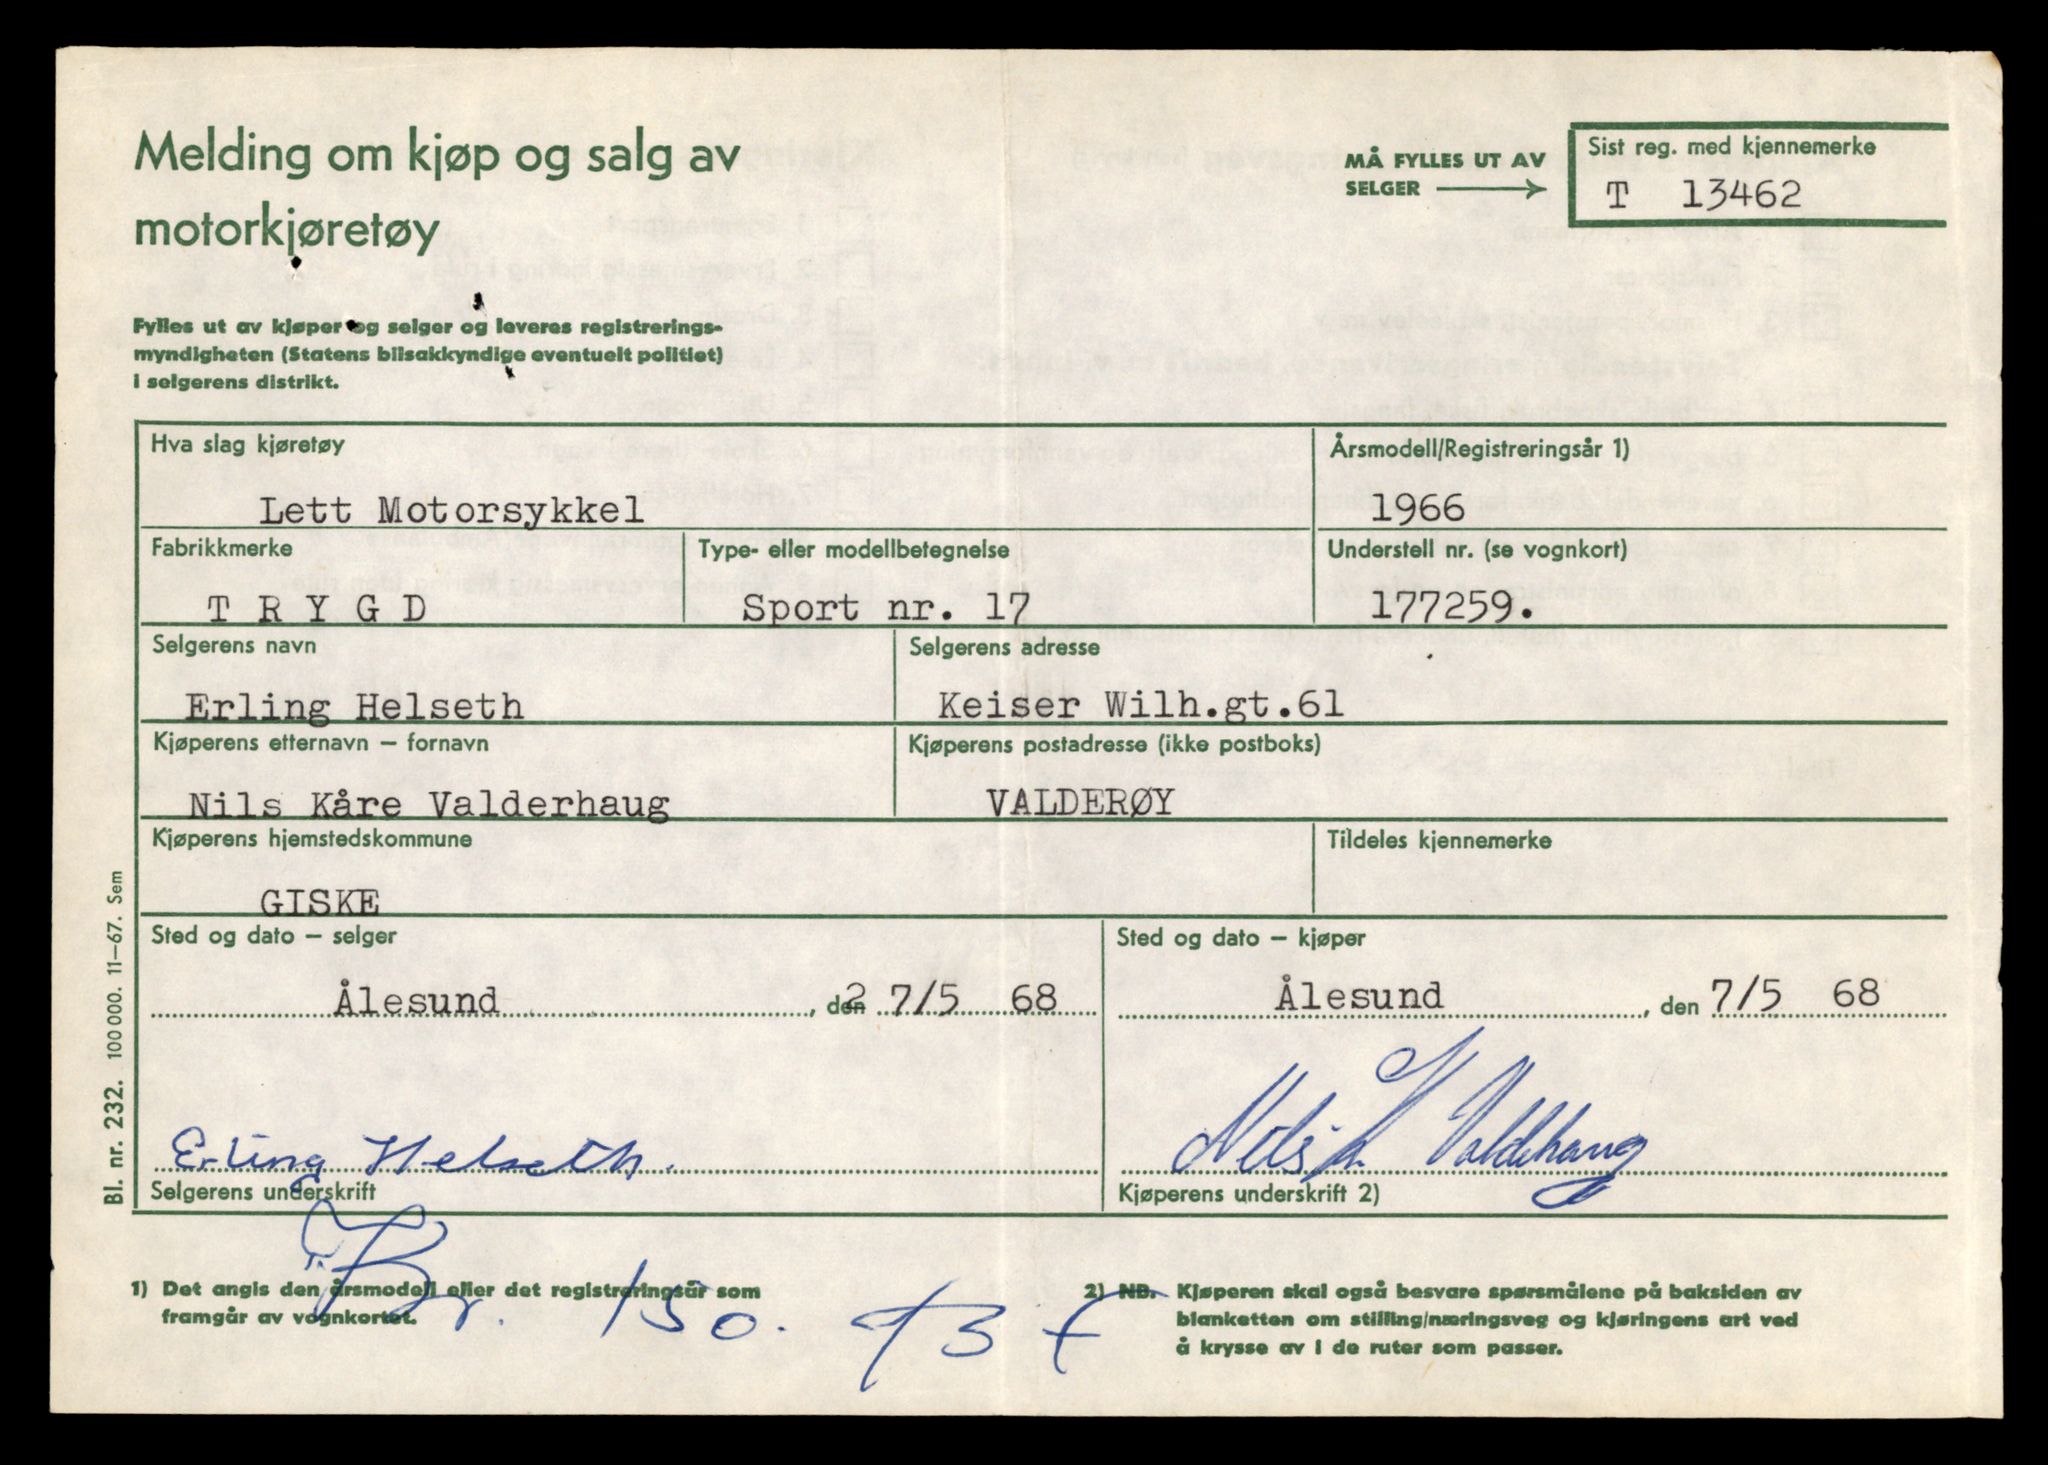 Melding om kjøp og salg av
motorkjøretøy
MÅ FYLLES UT AV
SELGER
Sist reg. med kjennemerke
T 13462
Fylles ut av kjøper og selger og leveres registrerings-
myndigheten (Statens bilsakkyndige eventuelt politiet)
i selgerens distrikt.
Hva slag kjøretøy
Lett Motorsykkel
Årsmodell/Registreringsår 1)
1966
Fabrikkmerke
T R Y G D
Type- eller modellbetegnelse
Sport nr. 17
Understell nr. (se vognkort)
177259.
Selgerens navn
Erling Helseth
Selgerens adresse
Keiser Wilh.gt.61
Kjøperens etternavn – fornavn
Nils Kåre Valderhaug
Kjøperens postadresse (ikke postboks)
VALDERØY
Kjøperens hjemstedskommune
GISKE
Tildeles kjennemerke
Sted og dato – selger
Ålesund, den 2 7/5 68
Sted og dato – kjøper
Ålesund, den 7/5 68
Erling Helseth.
Selgerens underskrift
Nils K Valderhaug
Kjøperens underskrift 2)
1) Det angis den årsmodell eller det registreringsår som
framgår av vognkortet.
Kr. 150.
2) NB. Kjøperen skal også besvare spørsmålene på baksiden av
blanketten om stilling/næringsveg og kjøringens art ved
å krysse av i de ruter som passer.
Bl. nr. 232. 100 000. 11–67. Sem